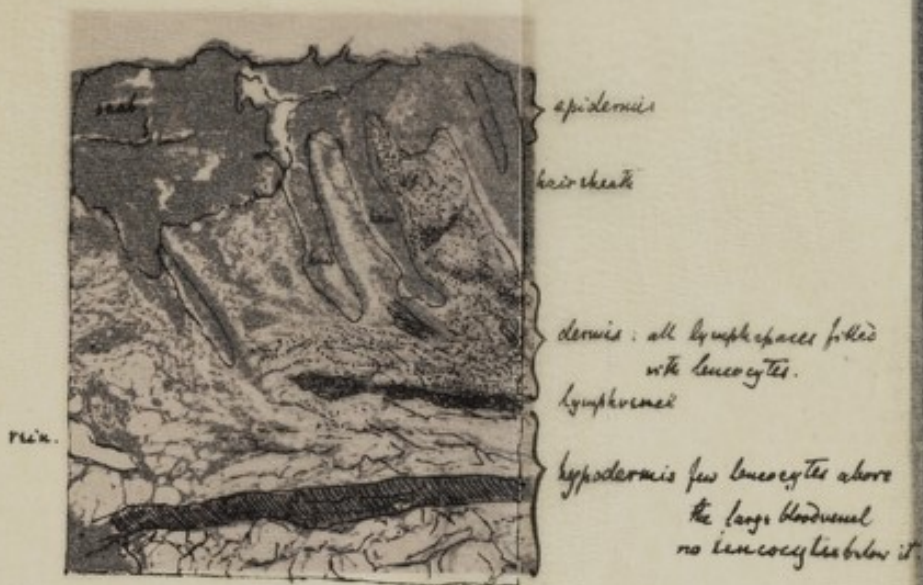 scab
epidermis
hair sheath
dermis : all lymphspaces filled
with leucocytes.
lymphvessel
vein.
hypodermis few leucocytes above
the large bloodvessel
no leucocytes below it